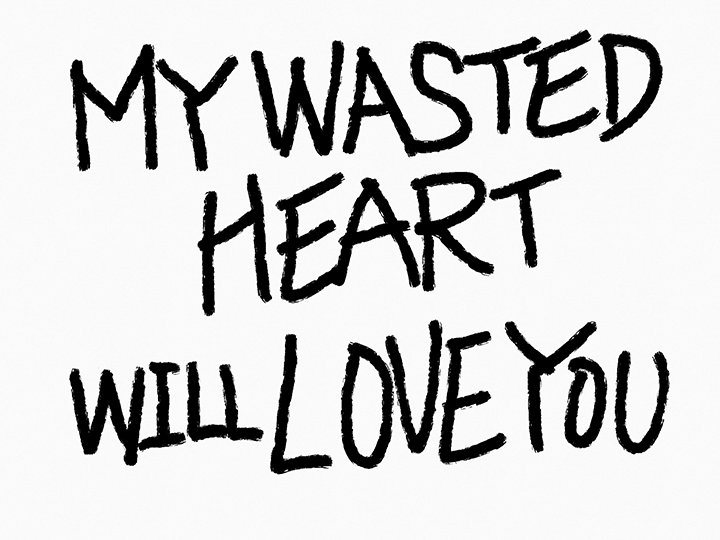 MY WASTED
HEART
WILL LOVE YOU